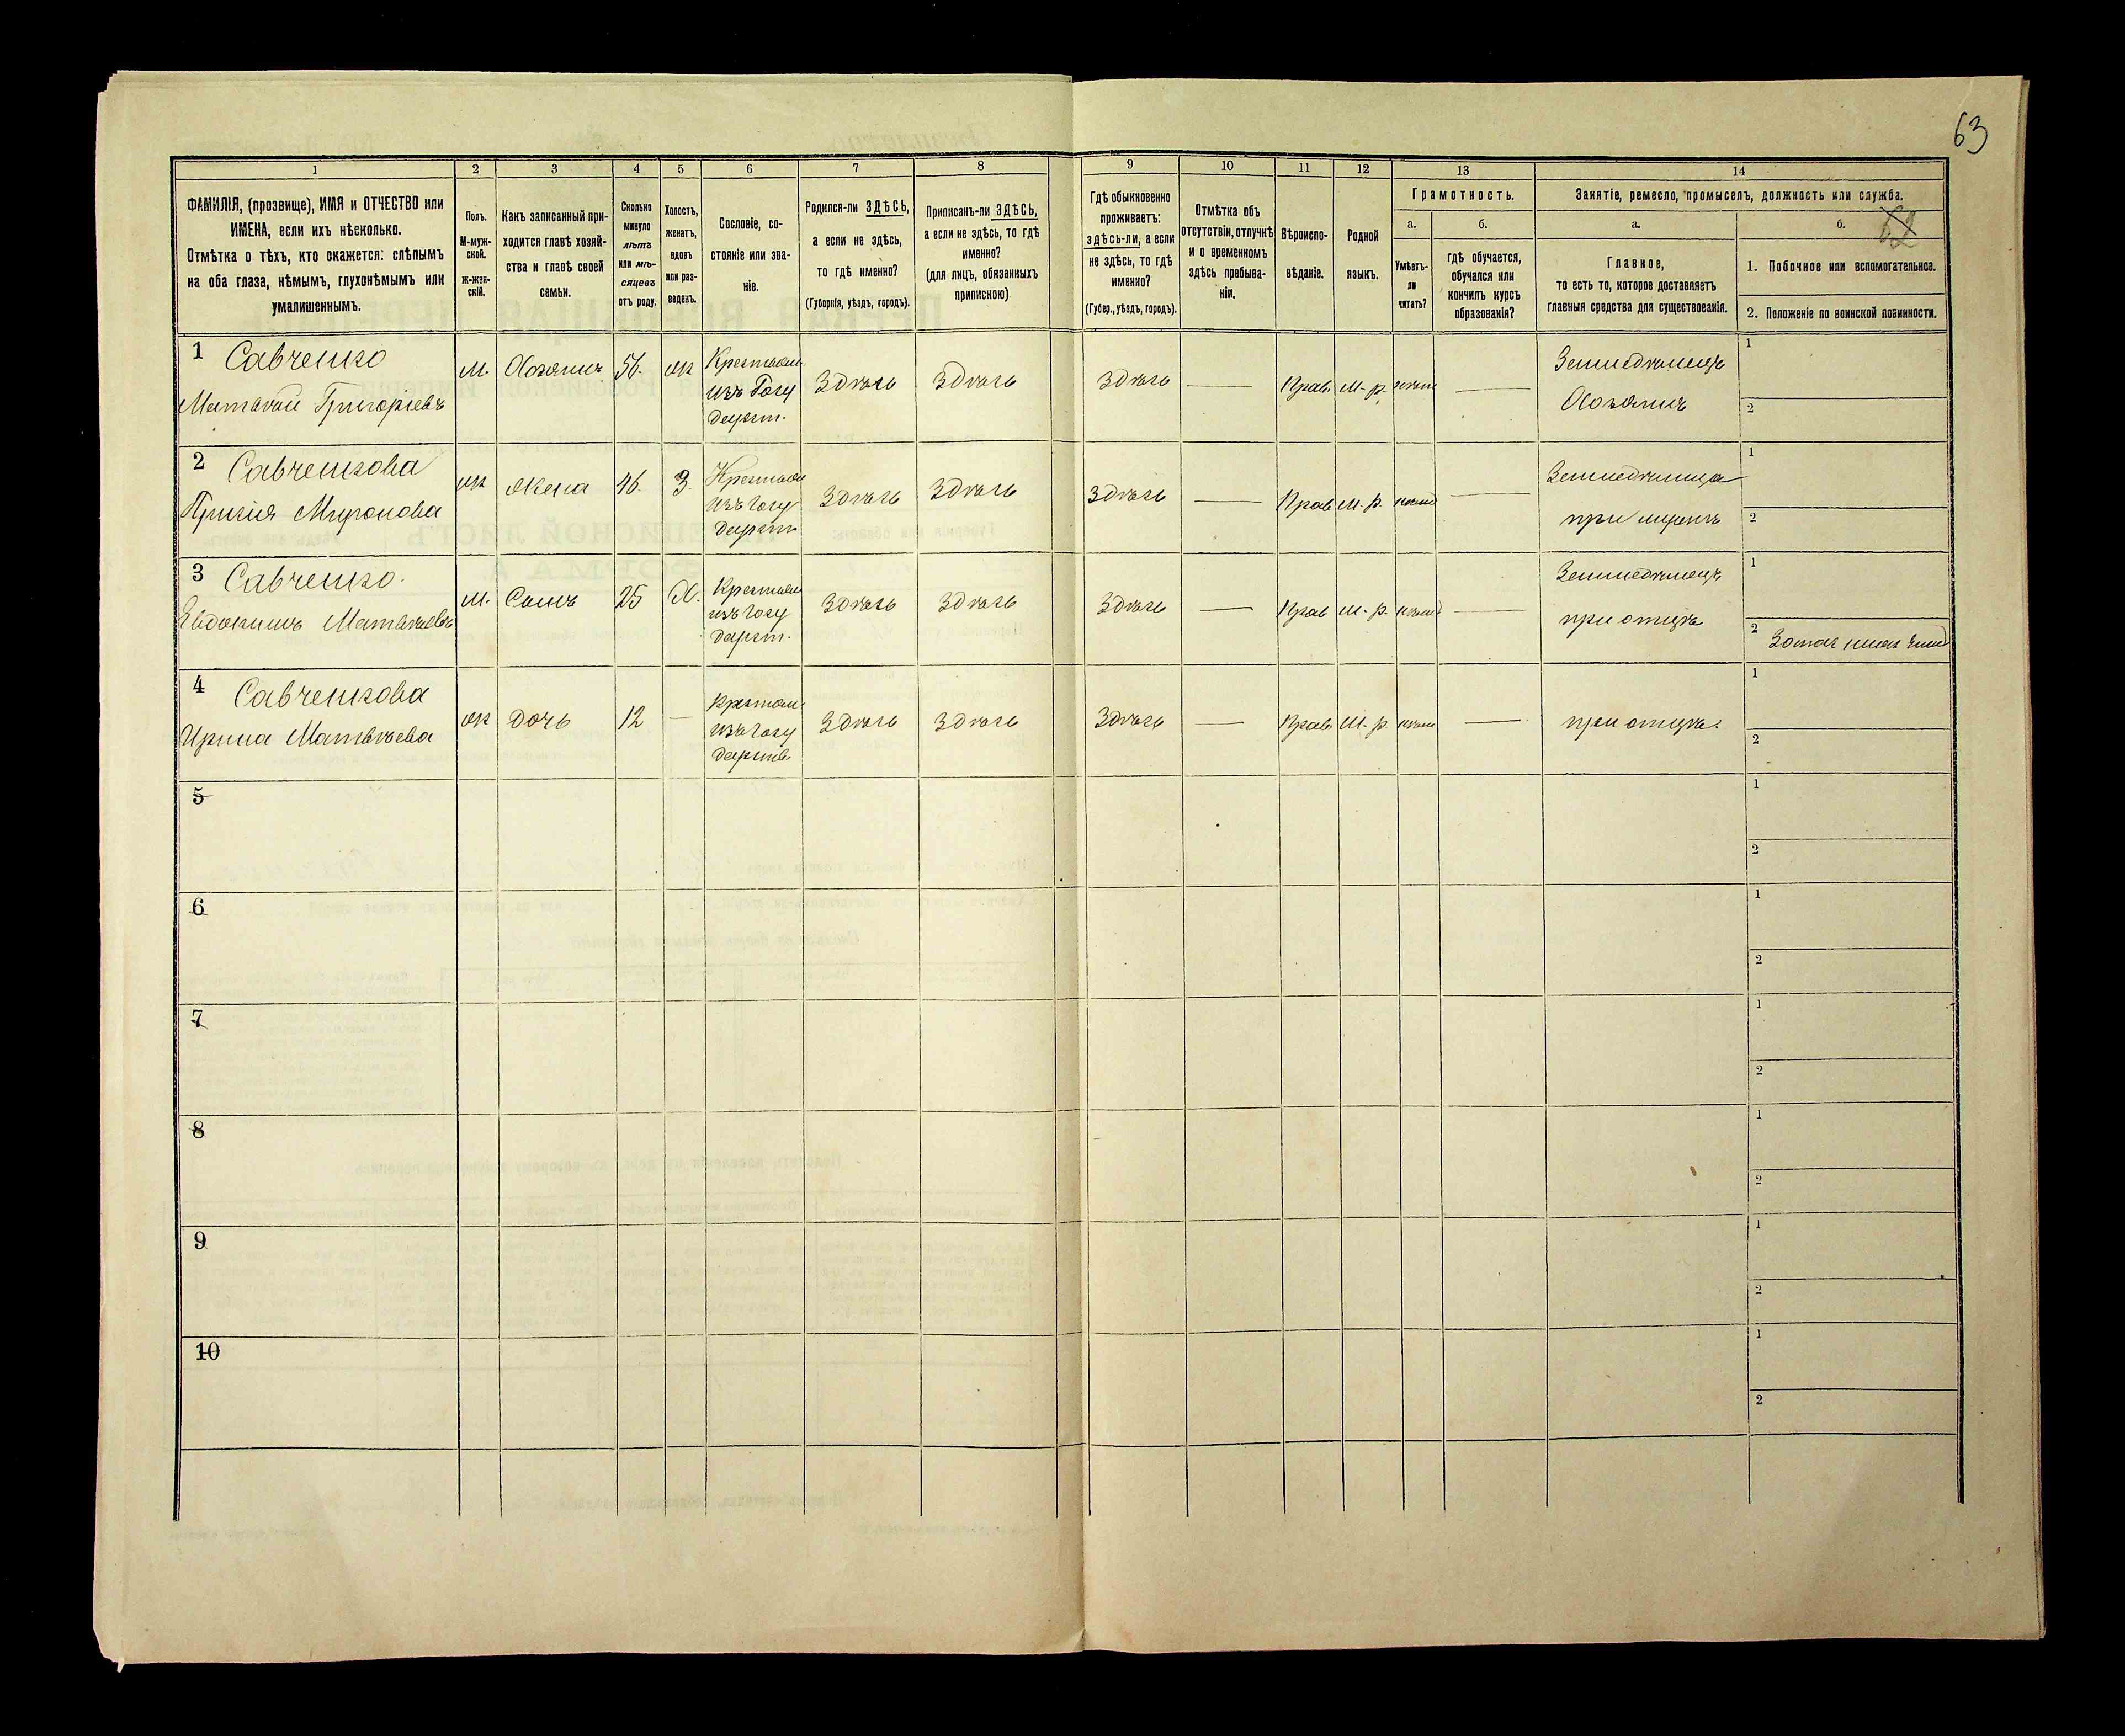 63
1
2
3
4
5
6
7
8
9
10
11
12
13
14
ФАМИЛІЯ, (прозвище), ИМЯ и ОТЧЕСТВО или
ИМЕНА, если ихъ нѣсколько.
Отмѣтка о тѣхъ, кто окажется: слѣпымъ
на оба глаза, нѣмымъ, глухонѣмымъ или
умалишеннымъ.
Полъ.
М-муж-
ской.
Ж-жен-
скій.
Какъ записанный при-
ходится главѣ хозяй-
ства и главѣ своей
семьи.
Сколько
минуло
лѣтъ
или мѣ-
сяцевъ
отъ роду.
Холостъ,
женатъ,
вдовъ
или раз-
веденъ.
Сословіе, со-
стояніе или зва-
ніе.
Родился-ли ЗДѢСЬ,
а если не здѣсь,
то гдѣ именно?
(Губернія, уѣздъ, городъ).
Приписанъ-ли ЗДѢСЬ,
а если не здѣсь, то гдѣ
именно?
(для лицъ, обязанныхъ
припискою)
Гдѣ обыкновенно
проживаетъ:
здѣсь-ли, а если
не здѣсь, то гдѣ
именно?
(Губер., уѣздъ, городъ).
Отмѣтка объ
отсутствіи, отлучкѣ
и о временномъ
здѣсь пребыва-
ніи.
Вѣроиспо-
вѣданіе.
Родной
языкъ.
Грамотность.
а.
Умѣетъ-
ли
читать?
б.
гдѣ обучается,
обучался или
кончилъ курсъ
образованія?
Занятіе, ремесло, промыселъ, должность или служба.
62
а.
Главное,
то есть то, которое доставляетъ
главныя средства для существованія.
б.
1. Побочное или вспомогательное.
2. Положеніе по воинской повинности.
1 Савченко
Матвѣй Григорьевъ
м. Хозяинъ 56. ж
Крестьян
изъ Госу
дарст.
Здѣсь Здѣсь Здѣсь — Прав. М-р. нѣт —
Земледѣлецъ
Хозяинъ
1
2
2 Савченкова
Мironова
ж жена 46. З.
Крестьян
изъ Госу
дарст
Здѣсь Здѣсь Здѣсь — Прав М-р. нѣт —
Земледѣлица
при мужѣ
1
2
3 Савченко.
Евдокимъ Матвѣевъ
м. Сынъ 25 Х.
Крестьян
изъ Госу
дарст.
Здѣсь Здѣсь Здѣсь — Прав М-р. нѣт —
Земледѣлецъ
при отцѣ
1
2
4 Савченкова
Ирина Матвѣева
ж дочь 12 —
Крестьян
изъ Госу
дарств.
Здѣсь Здѣсь Здѣсь — Прав. М-р. нѣт —
при отцѣ.
1
2
5
1
2
6
1
2
7
1
2
8
1
2
9
1
2
10
1
2